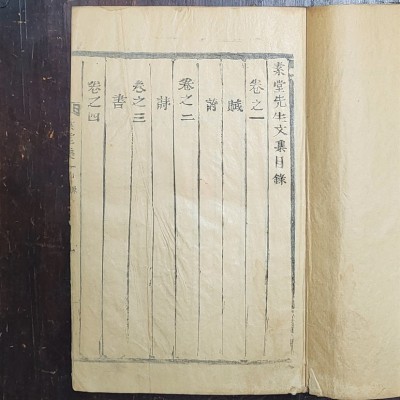 素堂先生文集目錄
卷之一
賦
詩
卷之二
詩
卷之三
書
卷之四